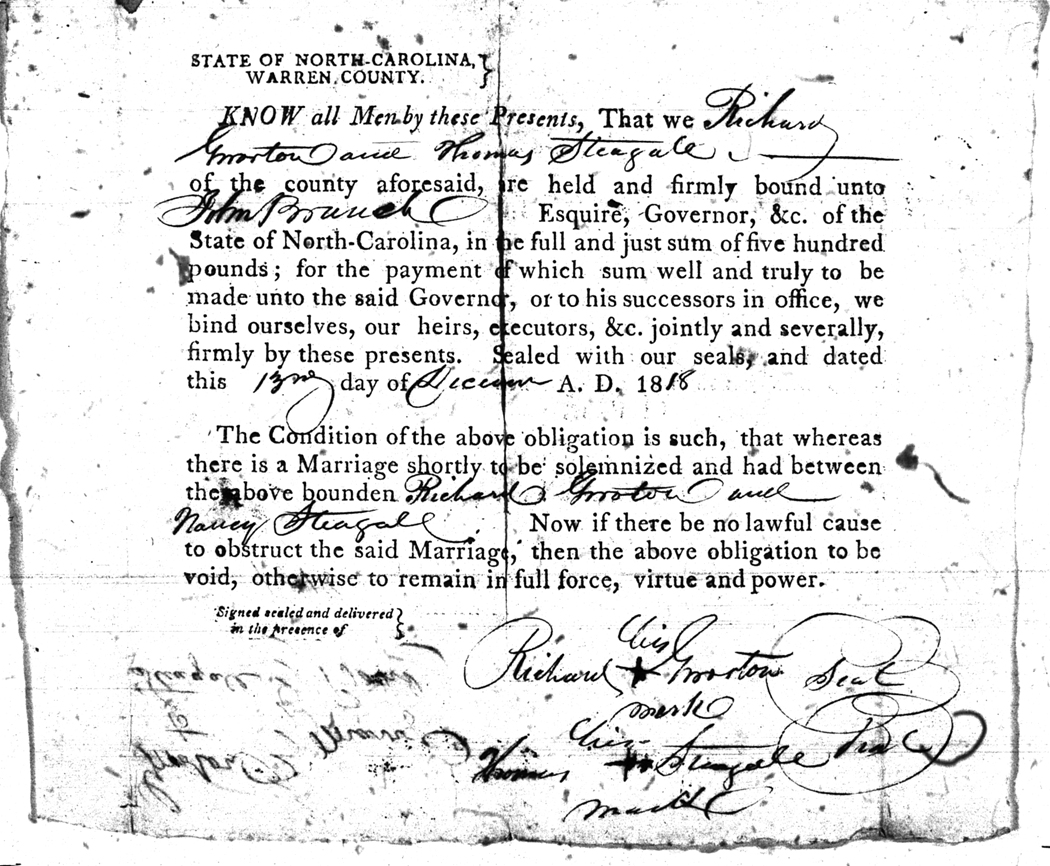 STATE OF NORTH-CAROLINA,
WARREN COUNTY.
KNOW all Men by these Presents, That we Richard
and Thomas Steagall
of the county aforesaid, are held and firmly bound unto
John Branch Esquire, Governor, &c. of the
State of North-Carolina, in the full and just sum of five hundred
pounds; for the payment of which sum well and truly to be
made unto the said Governor, or to his successors in office, we
bind ourselves, our heirs, executors, &c. jointly and severally,
firmly by these presents. Sealed with our seals, and dated
this day of A. D. 1818
The Condition of the above obligation is such, that whereas
there is a Marriage shortly to be solemnized and had between
the above bounden Richard and
Nancy Steagall. Now if there be no lawful cause
to obstruct the said Marriage, then the above obligation to be
void, otherwise to remain in full force, virtue and power.
Signed sealed and delivered
in the presence of
his
Richard + Seal
mark
his
Thomas + Steagall Seal
mark